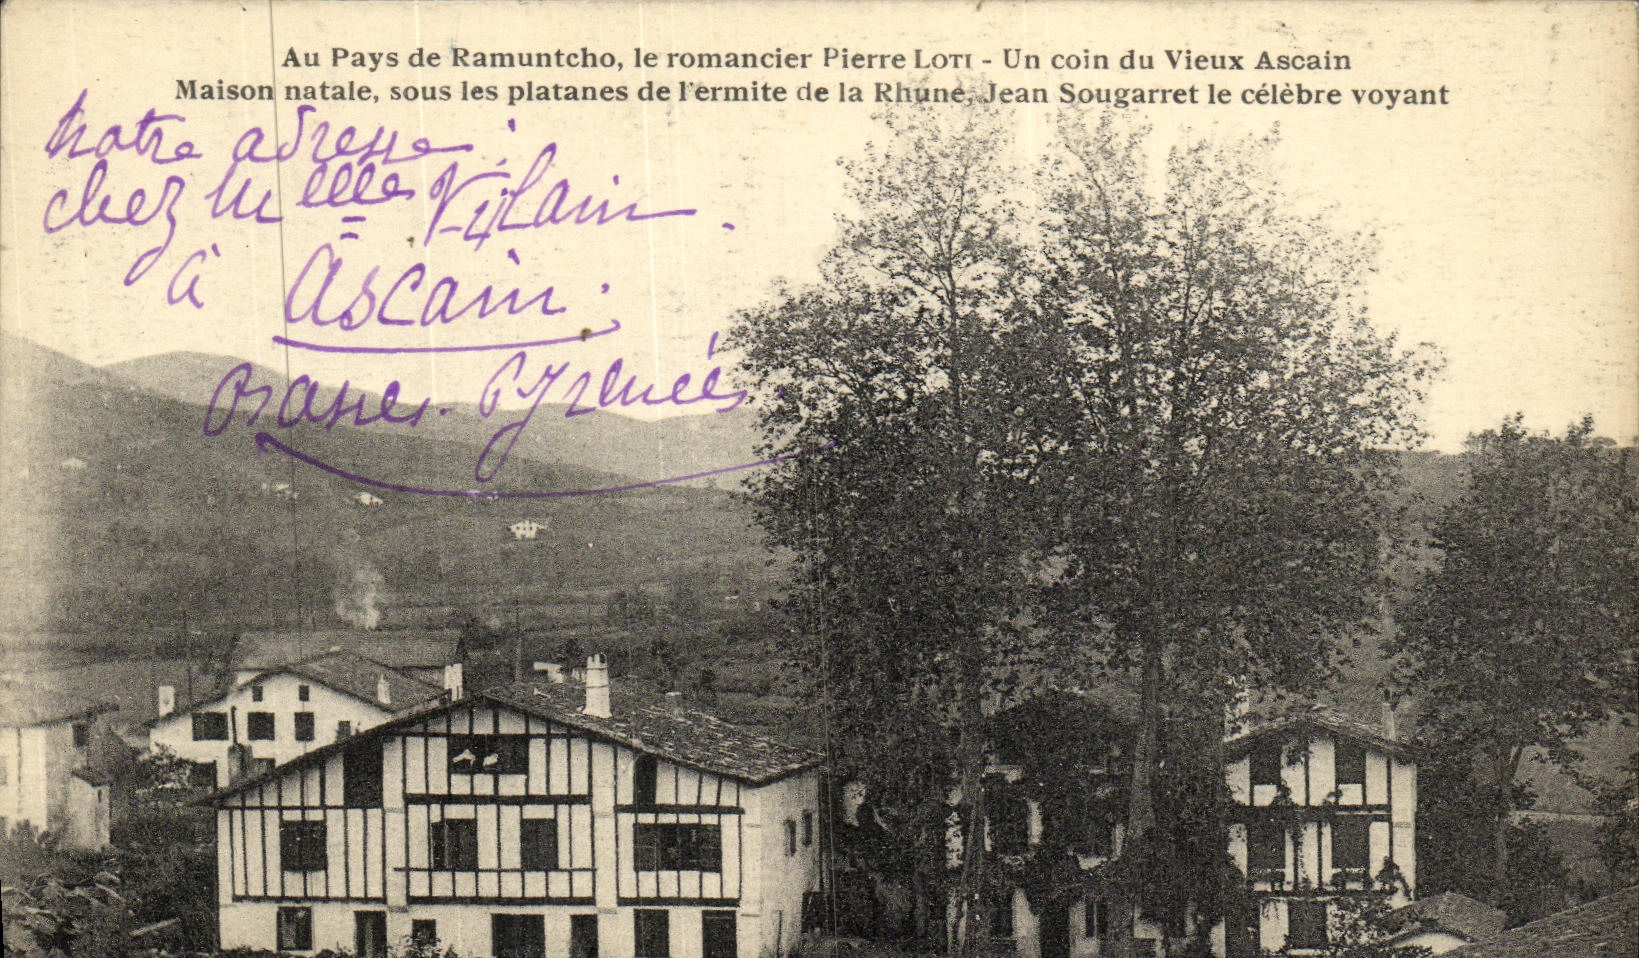 Au Pays de Ramuntcho, le romancier Pierre LOTI - Un coin du Vieux Ascain
Maison natale, sous les platanes de l'ermite de la Rhune, Jean Sougarret le célèbre voyant
notre adresse :
chez Melle Vilain.
à Ascain.
Basses-Pyrénées